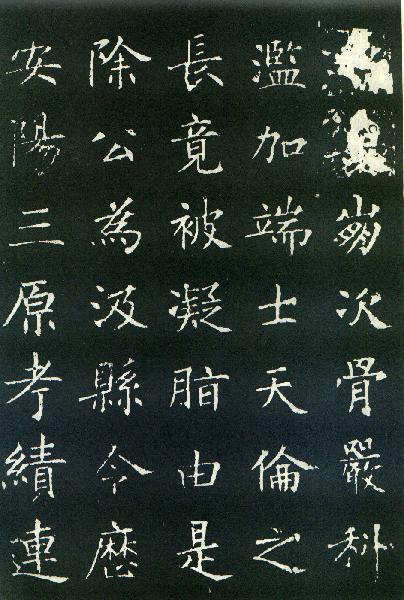 崩次骨嚴科
濫加端士天倫之
長竟被凝脂由是
除公為汲縣令歷
安陽三原考績連